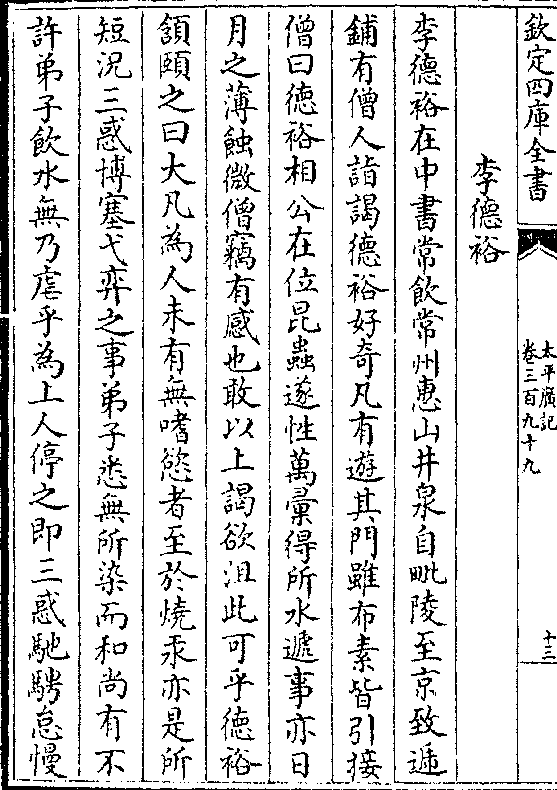 欽定四庫全書
太平廣記
卷三百九十九
十三
李德裕
李德裕在中書常飲常州惠山井泉自毗陵至京致遞
鋪有僧人詣謁德裕好奇凡有遊其門雖布素皆引接
僧曰德裕相公在位昆蟲遂性萬彙得所水遞事亦日
月之薄蝕微僧竊有感也敢以上謁欲沮此可乎德裕
頷頤之曰大凡為人未有無嗜慾者至於燒汞亦是所
短況三惑博塞弋弈之事弟子悉無所染而和尚有不
許弟子飲水無乃虐乎為上人停之即三惑馳騁怠慢